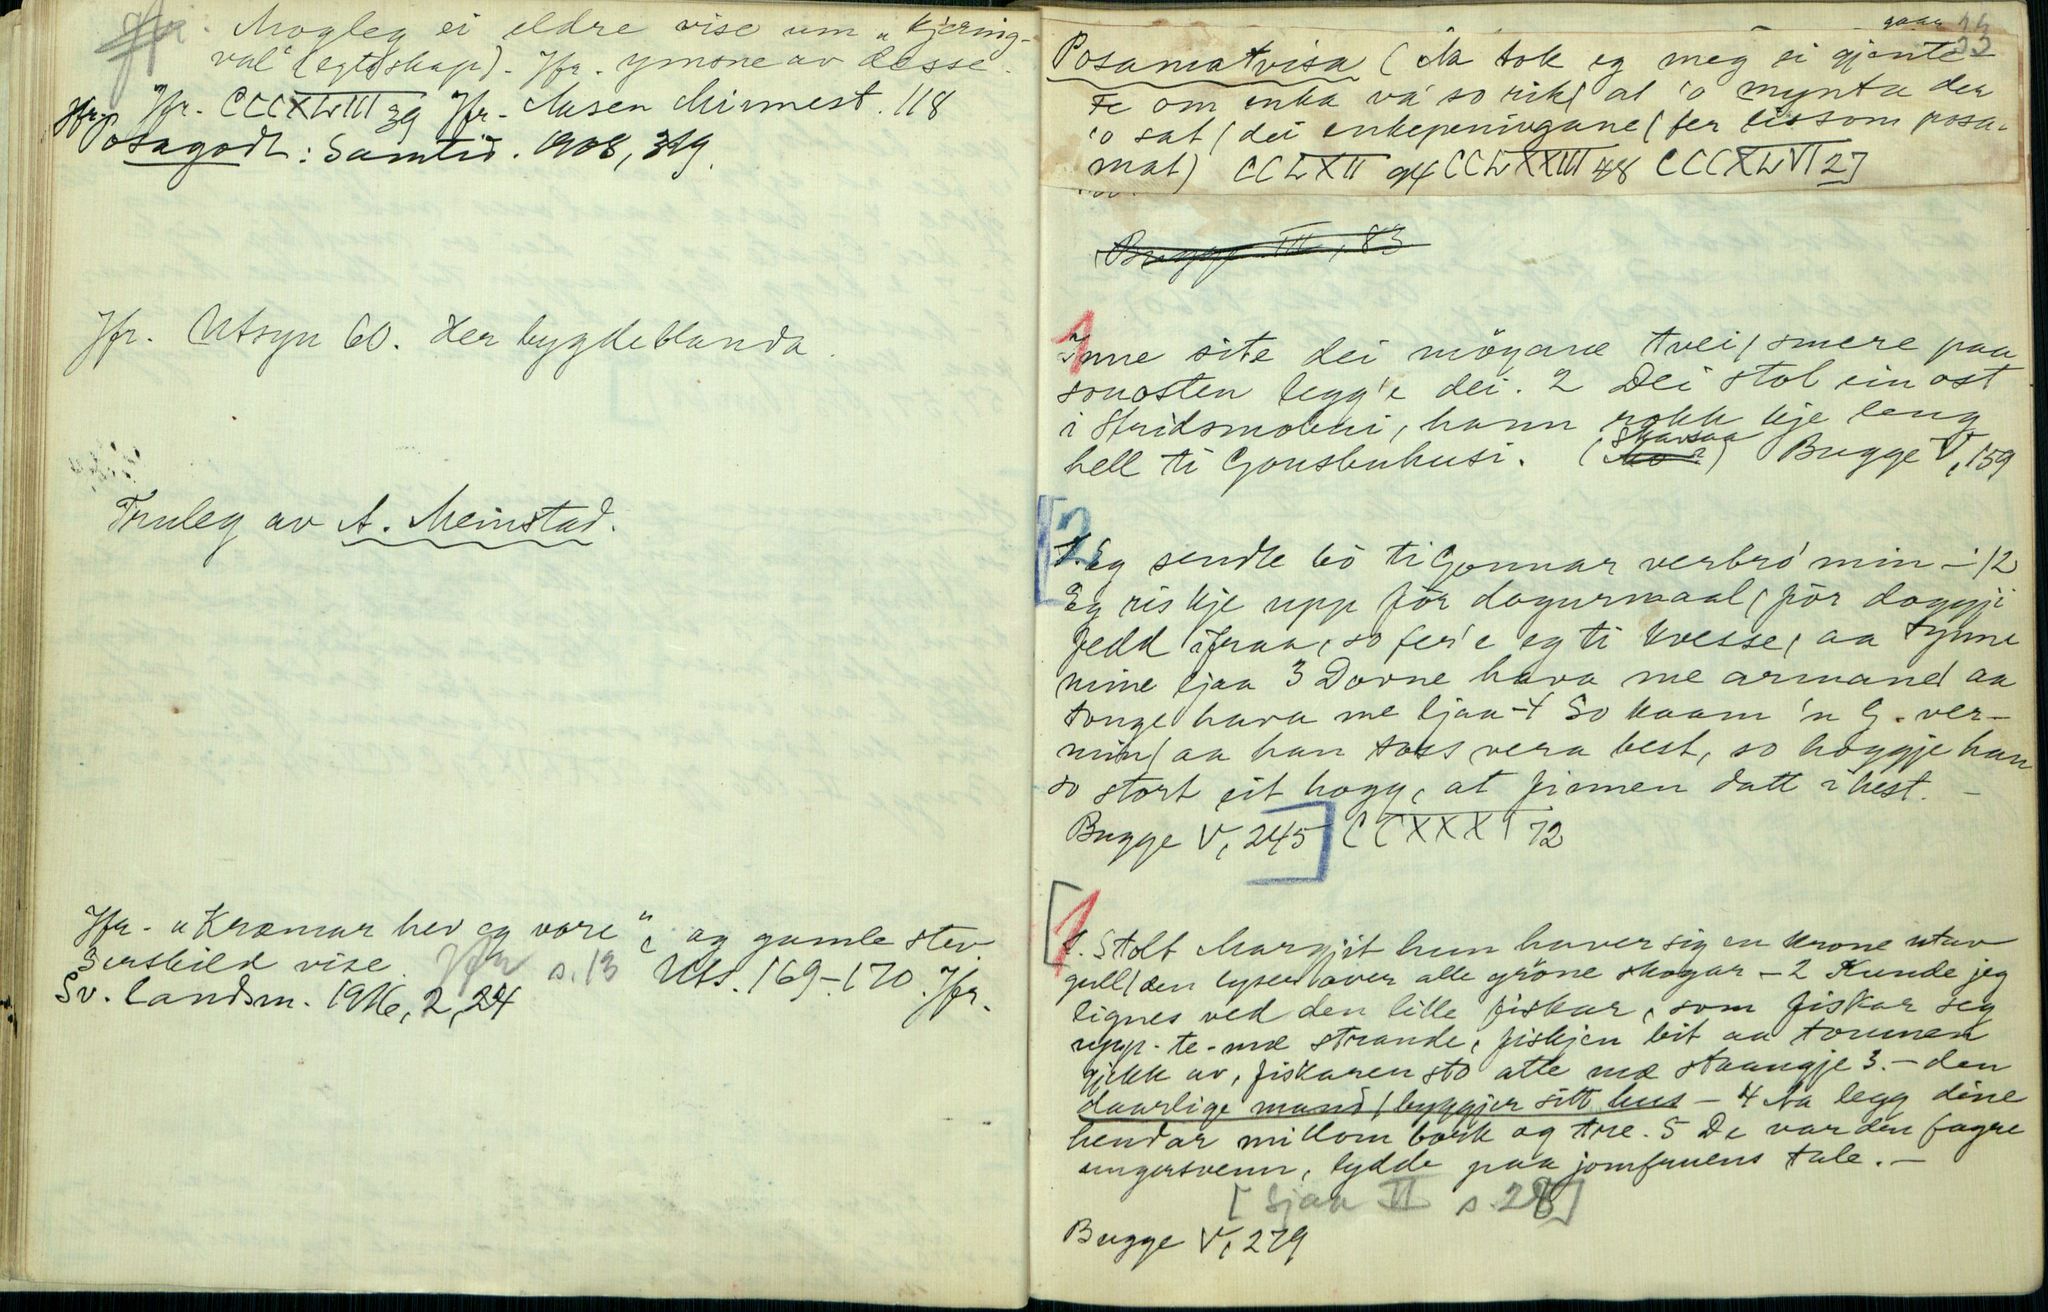 Jfr. Mogleg ei eldre vise um "kjering-
val" (egteskap). Jfr. ymsne av desse.
Jfr. Jfr. CCCXLVIII 39 Jfr. Aasen Minnest. 118
Posagodt: Samtid. 1908, 319.
Jfr. Utsyn 60. Her bygdeblanda.
Truleg av A. Meinstad.
Jfr. "Kræmar hev eg vore", og gamle stev.
Serskild vise. Jfr s. 13 Uts. 169-170. Jfr.
Sv. landsm. 1916, 2, 24
33
Posamatvisa (Aa tok eg meg ei gjente
Fe om enka va so rik/ at 'o mynta der
'o sat/ dei enkepeningane/ fer lissom posa-
mat) CCLXII 94 CCLXXIII 48 CCCXLVI 27
Bugge III, 83
1
Inne site dei möyane tvei/ smere paa
sonosten legg'e dei. 2 Dei stol ein ost
i Stridsmoeni, hann rokk kje leng
hell ti Gonsbuhusi. (Skarsaa) Bugge V, 159
2
1. Eg sendte bò ti Gonnar verbro' min - /2
Eg ris kje upp för dogurmaal/för doggji
fedd ifraa, so fer'e eg ti kvesse, aa tynne
mine ljaa 3 Dovne hava me armane/ aa
tonge hava me ljaa - 4 So kaam 'n G. ver-
min/ aa han toss vera best, so hoggje han
so stort eit hogg, at finnen datt i hest. -
Bugge V, 245 CCXXXI 72
1
1. Stolt Margjit hun haver sig en krone utav
gull/ den lyser over alle gröne skogar - 2 Kunde jeg
lignes ved den lille fiskar, som fiskar seg
upp-te-mæ strande, fiskjen beit aa tonnen
gjekk av, fiskaren sto atte mæ staangje 3. - den
daarlige mand/ byggjer sitt hus - 4 Aa legg dine
hendar millom bork og tre. 5 De var den fagre
ungersvenn, lydde paa jomfruens tale. -
[Sjaa II s. 28]
Bugge V, 279